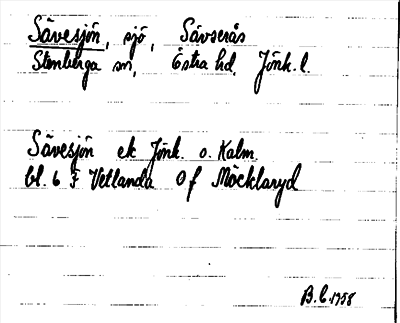 Sävesjön, sjö, Sävserås
Stenberga sn, Östra hd, Jönk. l.
Sävesjön ek Jönk. o. Kalm.
bl. 6 F Vetlanda Of Möcklaryd
B.C. 1958